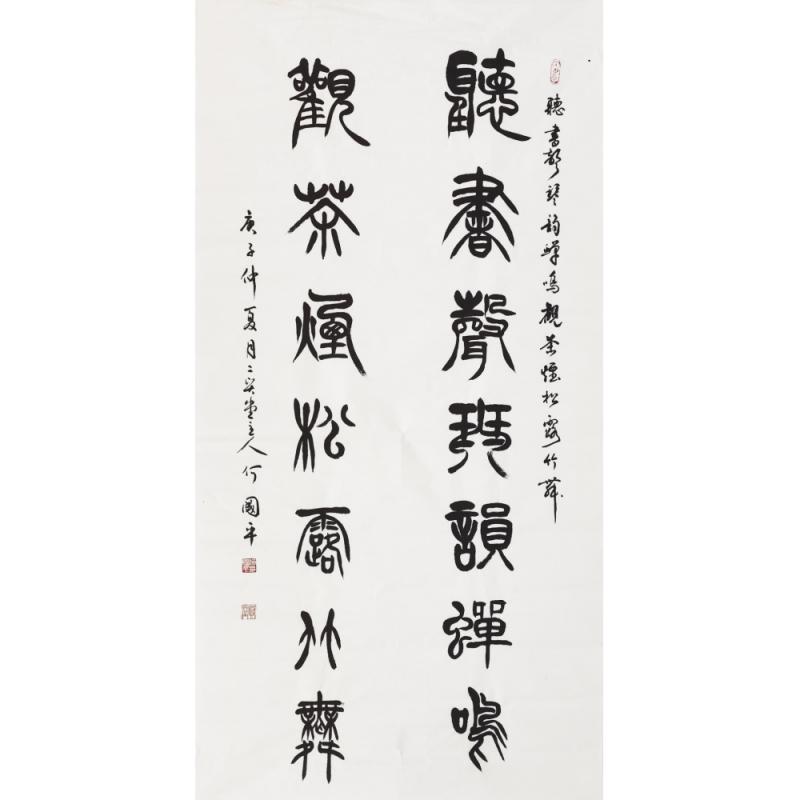 聽書聲琴韻蟬鳴觀茶煙松露竹舞
聽書聲琴韻蟬鳴
觀茶煙松露竹舞
庚子仲夏月二吳堂主人何國平